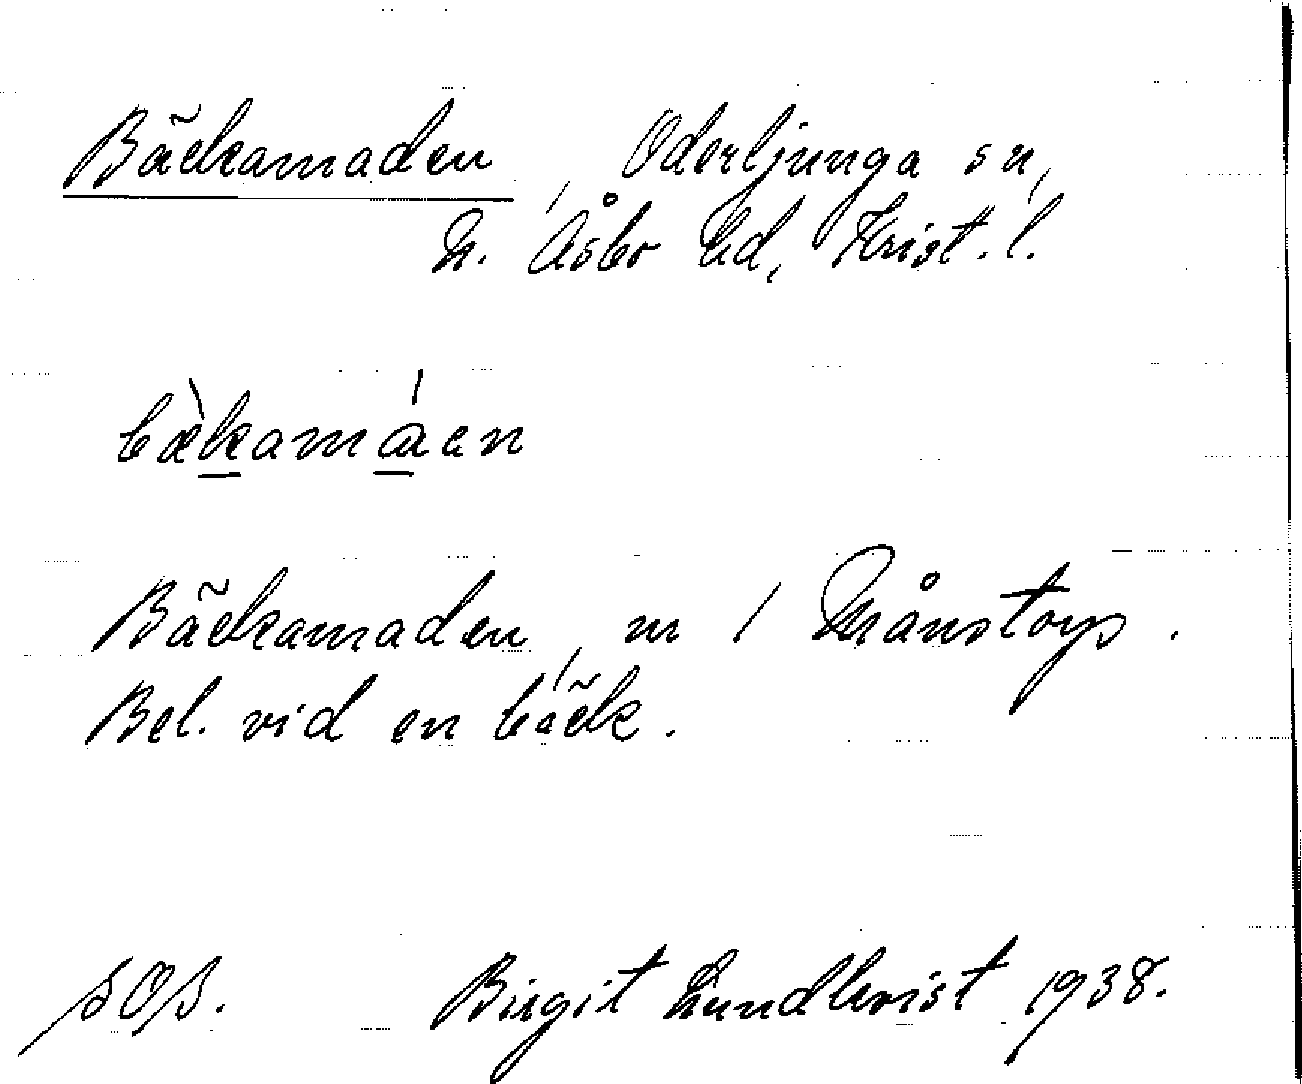 Bäckamaden, Oderljunga sn,
N. Åsbo hd, Krist. l.
bæ̀kamáen
Bäckamaden, m / Månstorp.
Bel. vid en bäck.
SOS. Birgit Lundkvist 1938.